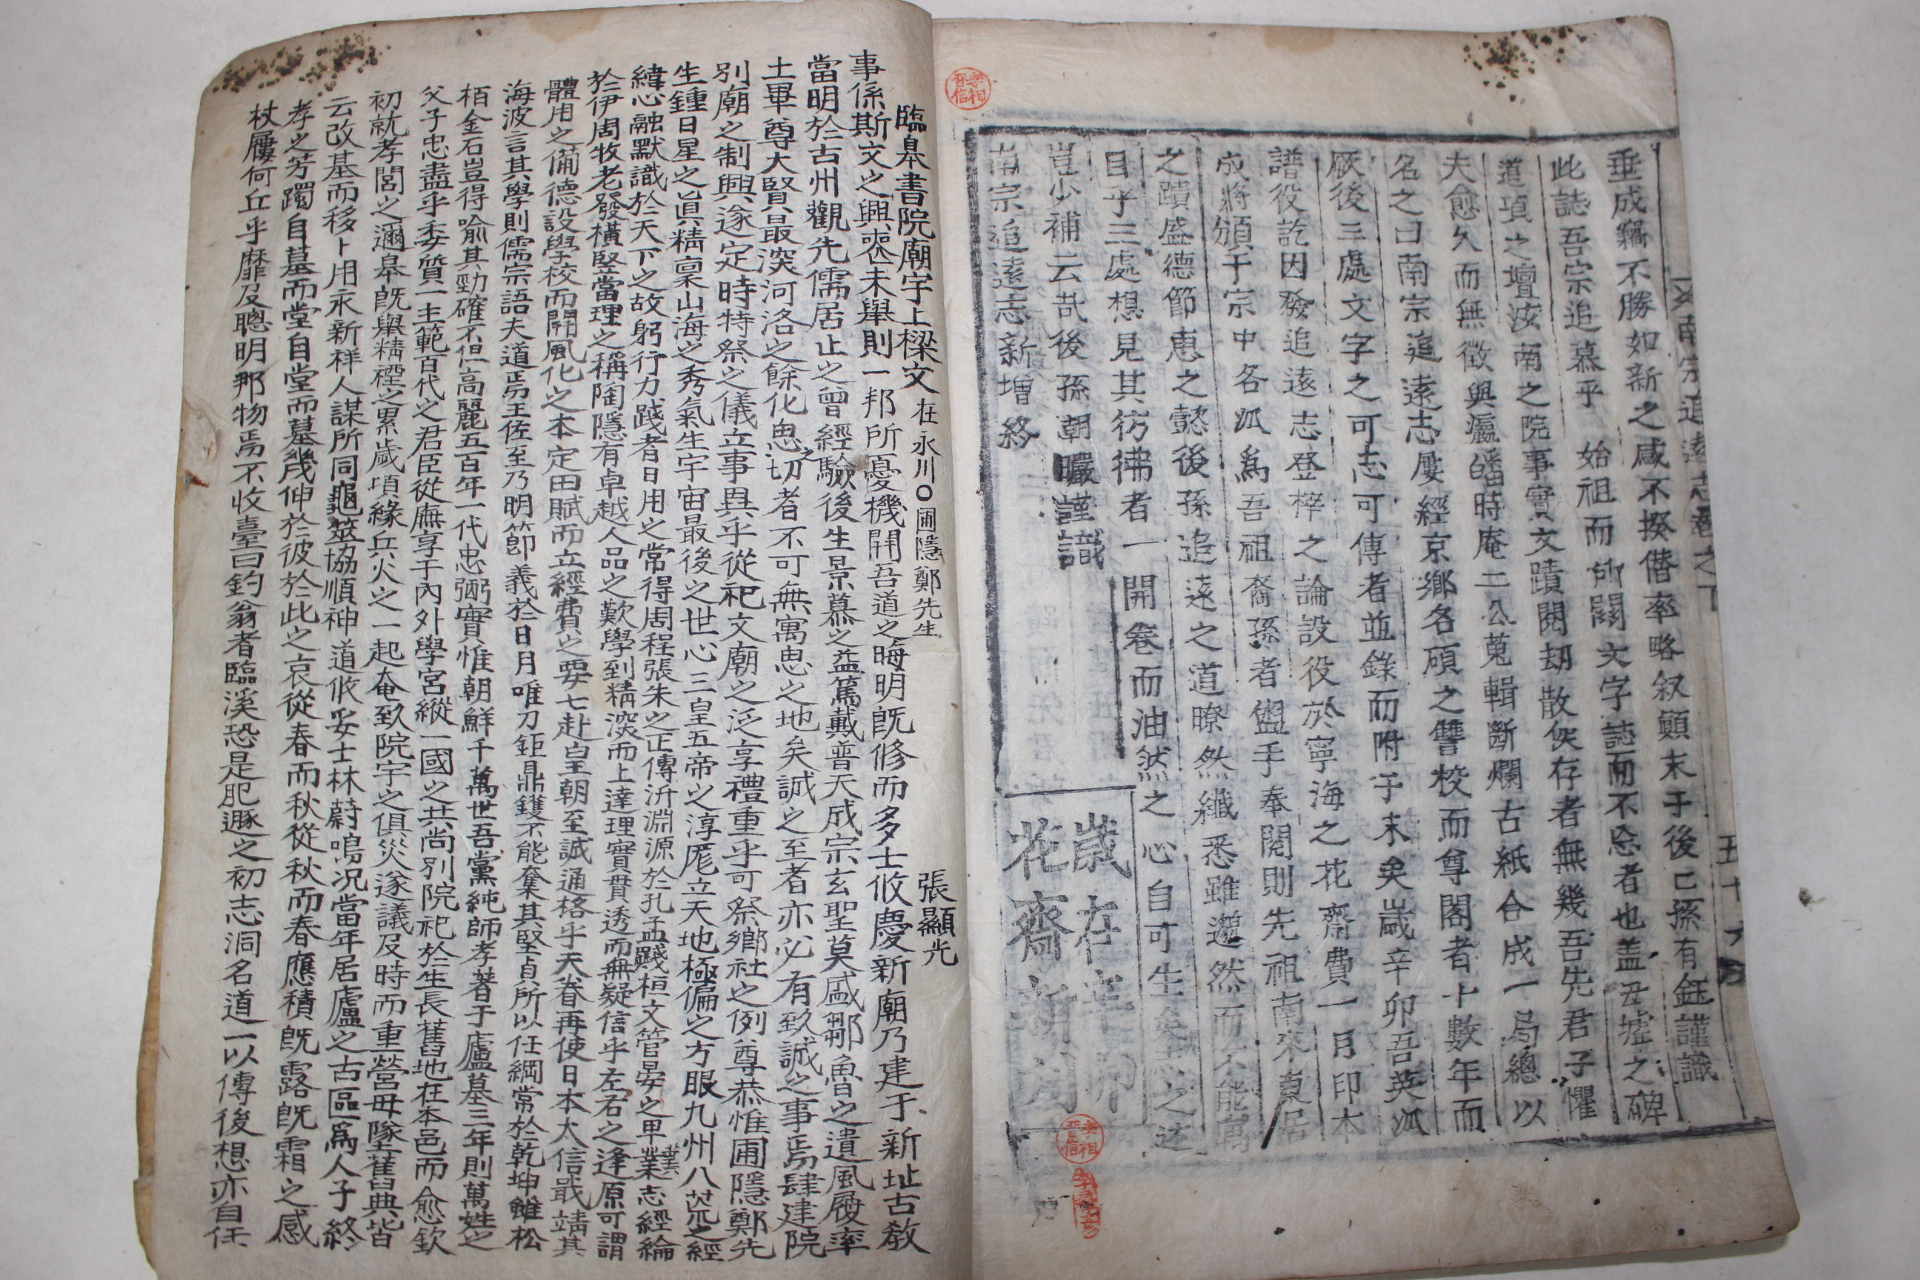 垂成竊不勝如新之感不揆僭率略叙顚末于後己孫有鈺謹識
此誌吾宗追慕乎 始祖而所關文字誌而不忘者也盖丑墟之碑
道項之壇汝南之院事實文蹟閱刼散佚存者無幾吾先君子懼
夫愈久而無徵與瀛皤時庵二公蒐輯斷爛古紙合成一局總以
名之曰南宗追遠志屢經京鄕各碩之讐校而尊閣者十數年而
厥後三處文字之可志可傳者並錄而附于末矣歲辛卯吾英派
譜役訖因發追遠志登梓之論設役於寧海之花齋費一月印本
成將頒于宗中各派爲吾祖裔孫者盥手奉閱則先祖南來奠居
之蹟盛德節惠之懿後孫追遠之道瞭然纖悉雖邈然而不能寓
目乎三處想見其彷彿者一開卷而油然之心自可生矣志之述
豈少補云哉後孫朝曮謹識
南宗追遠志新增終
歲在辛卯
花齋新刊
南宗追遠志卷之下
五十六
臨皐書院廟宇上樑文 在永川○圃隱鄭先生 張顯光
事係斯文之興喪未擧則一邦所憂機開吾道之晦明旣修而多士攸慶新廟乃建于新址古敎
當明於古州觀先儒居止之曾經驗後生景慕之益篤戴普天成宗玄聖莫盛鄒魯之遺風履率
土畢尊大賢最深河洛之餘化思切者不可無寓思之地矣誠之至者亦必有致誠之事焉肆建院
別廟之制興遂定時特祭之儀立事異乎從祀文廟之泛享禮重乎可祭鄕社之例尊恭惟圃隱鄭先
生鍾日星之眞精稟山海之秀氣生宇宙最後之世心三皇五帝之淳厖立天地極偏之方眼九州八荒之經
緯心融默識於天下之故躬行力踐者日用之常得周程張朱之正傳沂淵源於孔孟賤桓文管晏之卑業志經綸
於伊周牧老發橫竪當理之稱陶隱有卓越人品之歎學到精深而上達理實貫透而無疑信乎左右之逢原可謂
體用之備德設學校而開風化之本定田賦而立經費之要七赴皇朝至誠通格乎天眷再使日本大信戢靖其
海波言其學則儒宗語夫道焉王佐至乃明節義於日月唯刀鉅鼎鑊不能奪其堅貞所以任綱常於乾坤雖松
栢金石豈得喩其勁確不但高麗五百年一代忠弼實惟朝鮮千萬世吾黨純師孝著于廬墓三年則萬姓之
父子忠盡乎委質一主範百代之君臣從廡享于內外學宮縱一國之共尚別院祀於生長舊地在本邑而愈欽
初就孝閭之邇皐旣擧精禋之累歲頃緣兵火之一起奄致院宇之俱災遂議及時而重營毋墜舊典皆
云改基而移卜用永新祥人謀所同龜筮協順神道攸妥士林蔚鳴况當年居廬之古區爲人子終
孝之芳躅自墓而堂自堂而墓幾伸於彼於此之哀從春而秋從秋而春應積旣露旣霜之感
杖屨何丘乎靡及聰明那物焉不收臺曰釣翁者臨溪恐是肥遯之初志洞名道一以傳後想亦自任